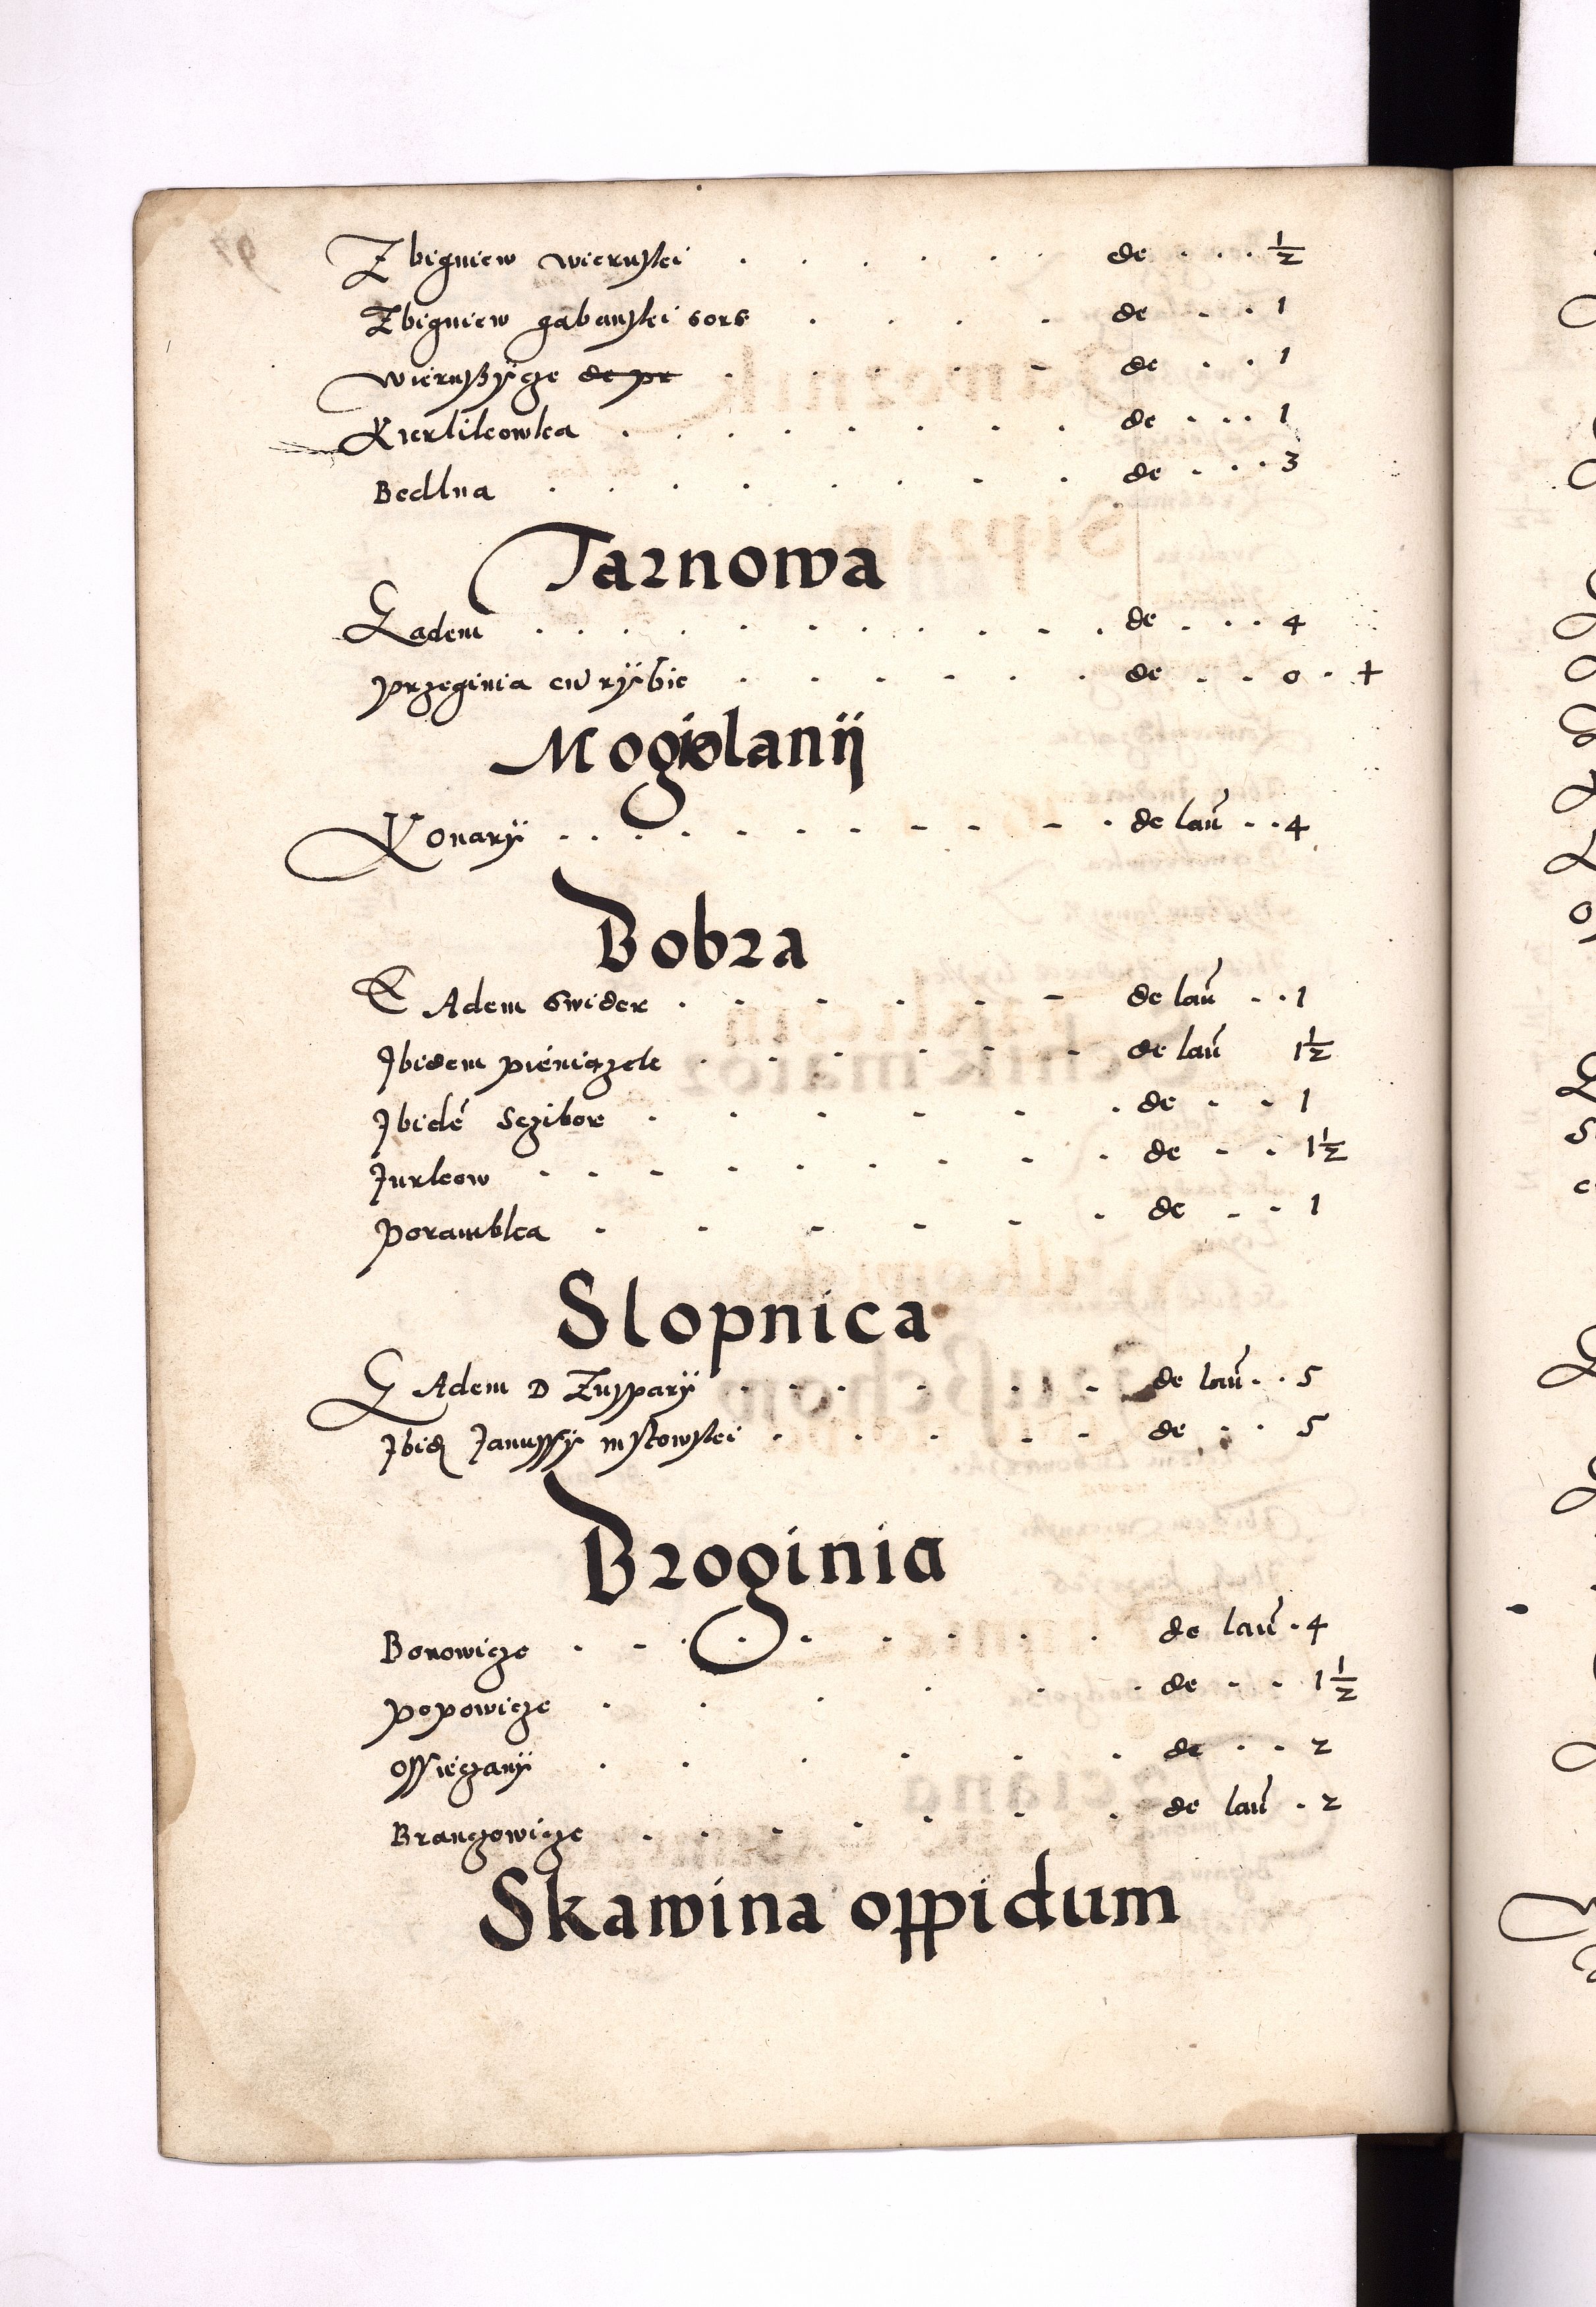 Zbigniew wieruski . . . . . . de . . . ½
Zbigniew gabanski sors . . . . de . . 1
wierußycze de pr . . . . . de . . 1
Kierlikowka . . . . . . . . de . . . 1
Bedlna . . . . . . . . de . . . 3
Tarnowa
Eadem . . . . . . . . . . de . . . 4
przeginia cū rÿbie . . . . . . de . . 0 . +
Mogiolanÿ
Konarÿ . . . . . . . . . . de laū . . 4
Dobra
EAdem Swider . . . . . . de laū . . 1
Jbidem pieniazek . . . . . . de laū 1½
Jbidē Sczibor . . . . . . de . . 1
Jurkow . . . . . . . . . de . . 1½
porambka . . . . . . de . . 1
Slopnica
EAdem D Zupparÿ . . . . . . de laū . . 5
Jbid Janussÿ mstowski . . . . . de . . 5
Broginia
Borowicze . . . . . . . . . de laū . 4
popowicze . . . . . . de . . 1½
Ossieczanÿ . . . . . . de . . 2
Branczowicze . . . . . . . de laū . 2
Skawina oppidum